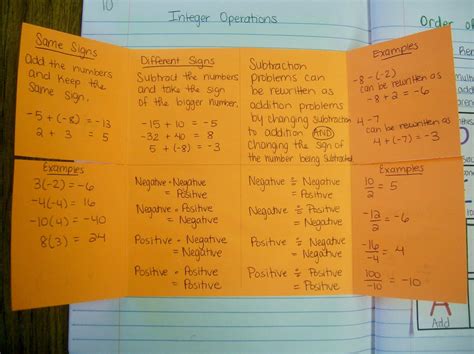 10
Integer Operations
Order of
Same Signs
Add the numbers
and keep the
same sign.
-5 + (-8) = -13
2 + 3 = 5
Different Signs
Subtract the numbers
and take the sign
of the bigger number.
-15 + 10 = -5
-32 + 40 = 8
5 + (-8) = -3
Subtraction
problems can
be rewritten as
addition problems
by changing subtraction
to addition AND
changing the sign of
the number being subtracted.
Examples
-8 - (-2)
can be rewritten as
-8 + 2 = -6
4 - 7
can be rewritten as
4 + (-7) = -3
3(-2) = -6
-4(-4) = 16
-10(4) = -40
8(3) = 24
Negative · Negative
= Positive
Positive · Negative
= Negative
Positive · Positive
= Positive
Negative ÷ Negative
= Positive
Positive ÷ Negative
= Negative
Positive ÷ Positive
= Positive
Examples
10/2 = 5
-12/2 = -6
-16/-4 = 4
100/-10 = -10
A
Add